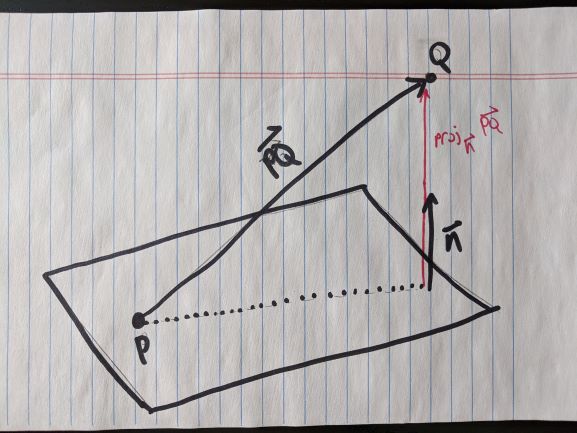 Q
PQ
proj n PQ
n
P